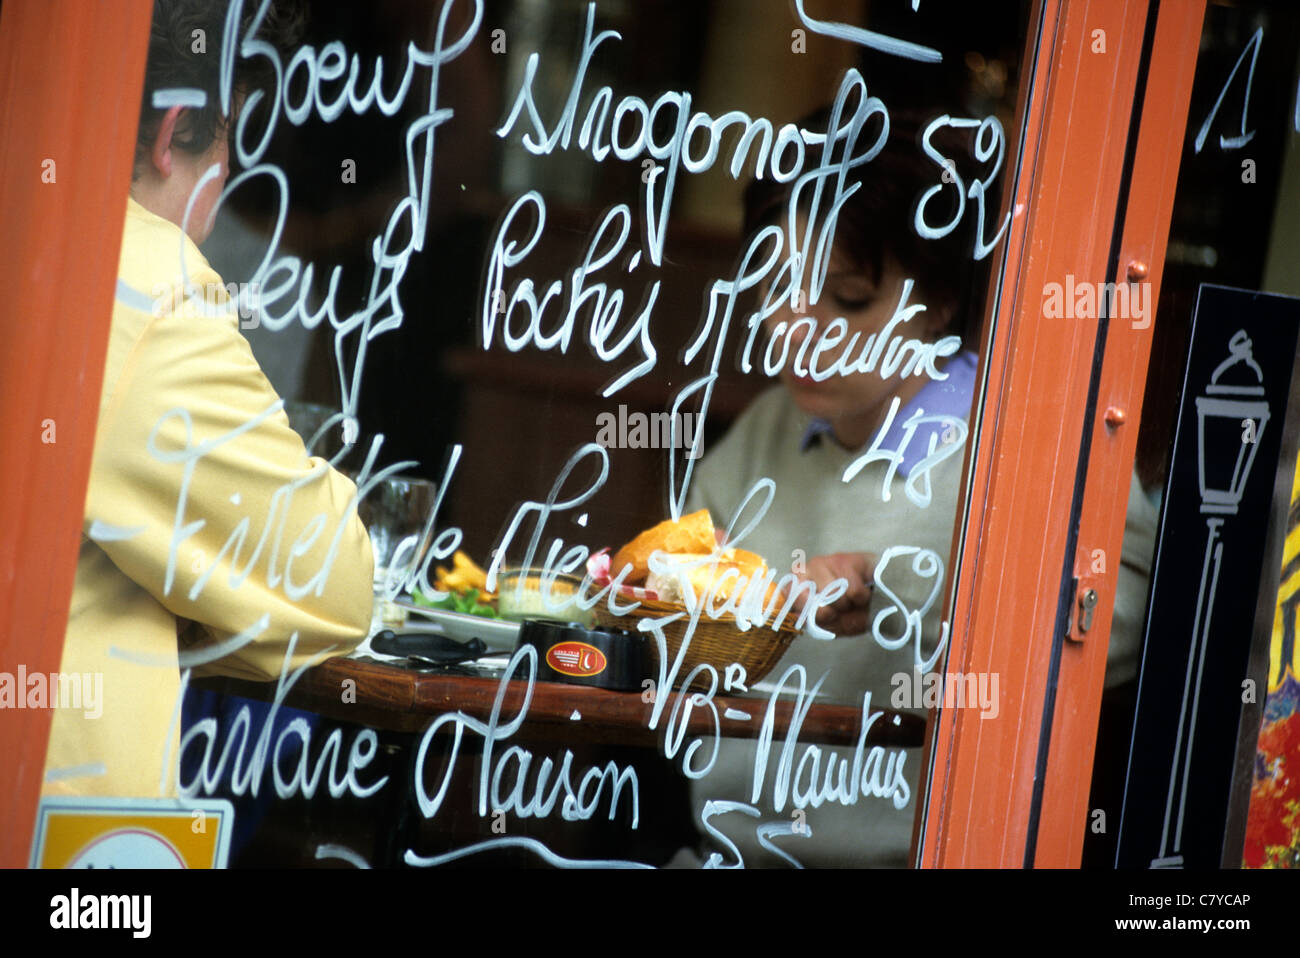 - Bœuf strogonoff 52
Oeufs Pochés florentine
48
- Filet de lieu Jaune 52
Br Nantais
Tartare Maison
55
1
alamy
Image ID: C7YCAP
www.alamy.com